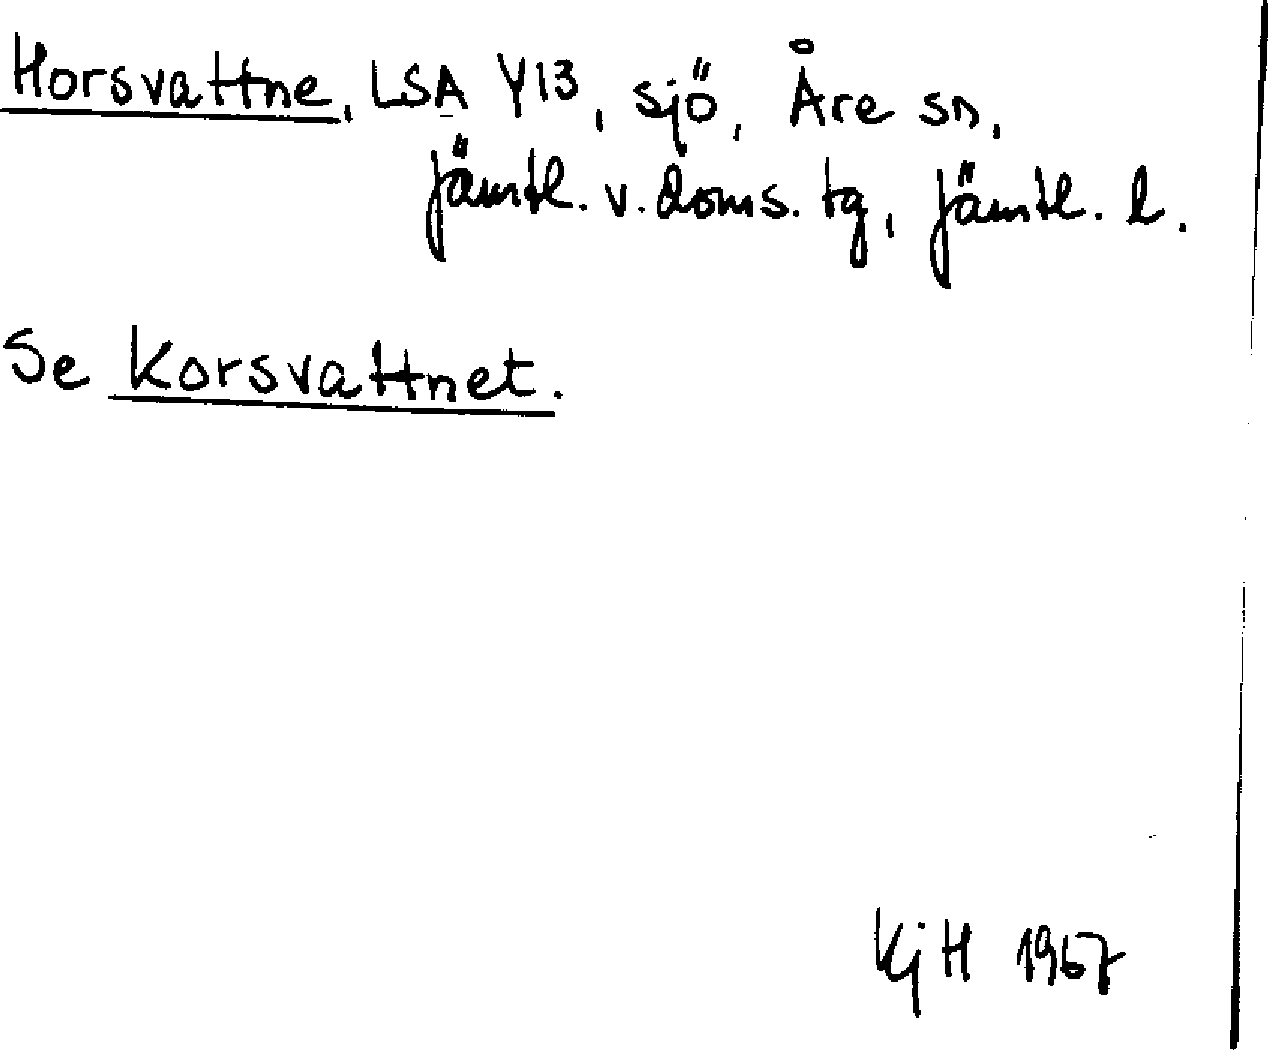 Horsvattne, LSA Y13, sjö, Åre sn,
Jämtl. v. doms. tg, Jämtl. l.
Se Korsvattnet.
KjH 1967